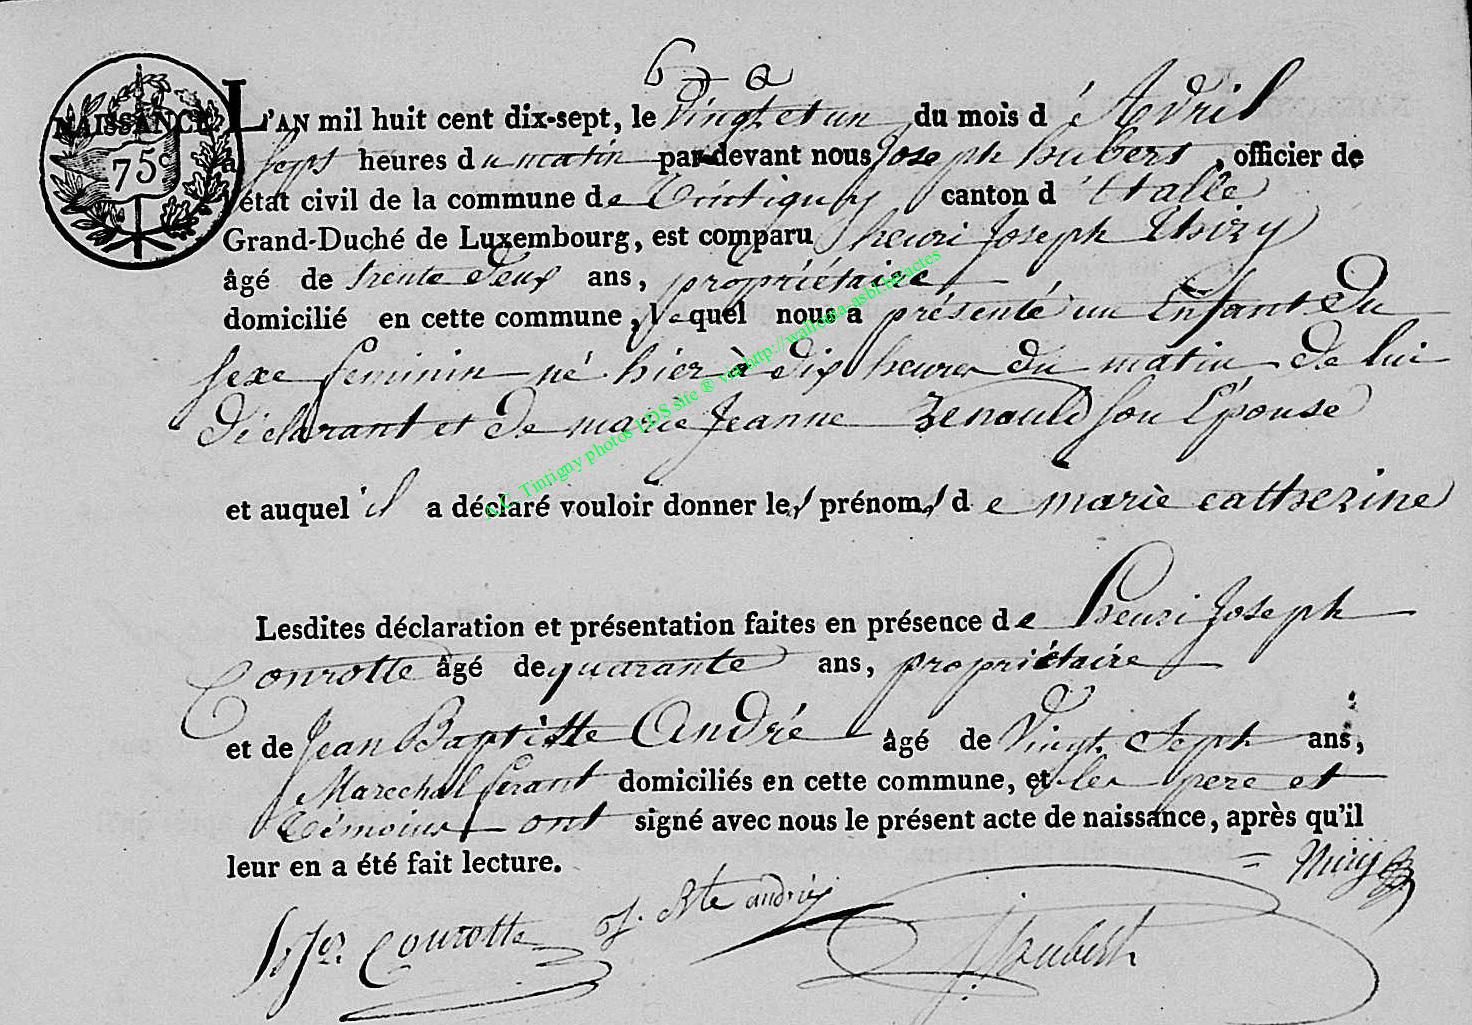 NAISSANCE.
75c
L'AN mil huit cent dix-sept, le vingt et un du mois d'Avril
à Sept heures du matin par-devant nous Joseph hubert, officier de
l'état civil de la commune de Tintigny canton d'Etalle
Grand-Duché de Luxembourg, est comparu henri Joseph Thiry
âgé de trente deux ans, propriétaire
domicilié en cette commune, lequel nous a présenté un Enfant du
sexe feminin né hier à dix heures du matin de lui
déclarant et de marie Jeanne Renauld son Epouse
et auquel il a déclaré vouloir donner les prénoms de marie catherine
Lesdites déclaration et présentation faites en présence de henri Joseph
Courotte âgé de quarante ans, propriétaire
et de Jean Baptiste André âgé de Vingt Sept ans,
Marechal ferant domiciliés en cette commune, et les pere et
témoins ont signé avec nous le présent acte de naissance, après qu'il
leur en a été fait lecture.
Courotte J. Bte andrié
J hubert
A.C. Tintigny photos LDS site ® via http://wallonia-asbl.be/actes